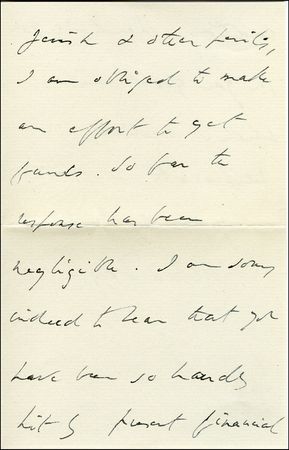 Jewish & other perils,
I am obliged to make
an effort to get
funds. So far the
response has been
negligible. I am sorry
indeed to hear that you
have been so hardly
hit by present financial